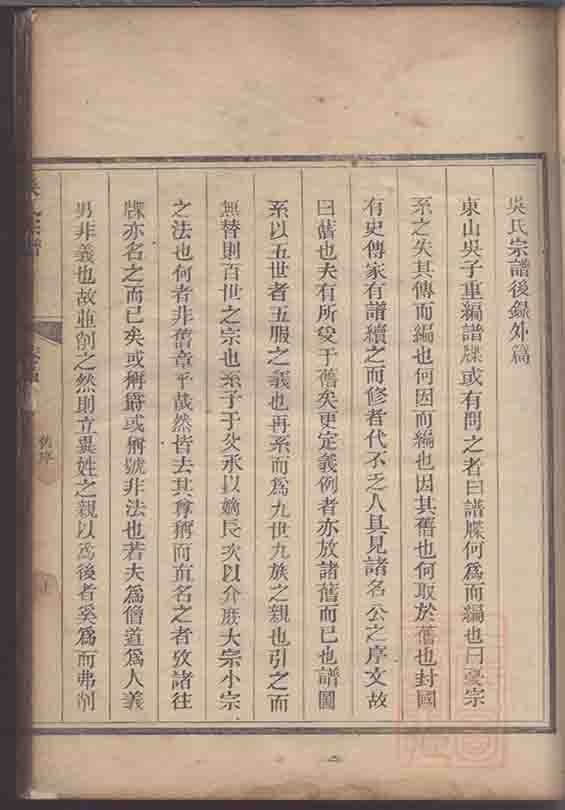 吳氏宗譜後錄外篇
東山吳子重編譜牒或有問之者曰譜牒何為而編也曰憂宗
系之失其傳而編也何因而編也因其舊也何取於舊也封國
有史傳家有譜續之而修者代不乏人具見諸名公之序文故
曰舊也夫有所受于舊矣更定義例者亦放諸舊而已也譜圖
系以五世者五服之義也再系而為九世九族之親也引之而
無替則百世之宗也系子于父承以嫡長次以介庶大宗小宗
之法也何者非舊章乎哉然皆去其尊稱而直名之者攷諸往
牒亦名之而已矣或稱爵或稱號非法也若夫為僧道為人義
男非義也故並削之然則立異姓之親以為後者奚為而弗削
宗譜
舊序